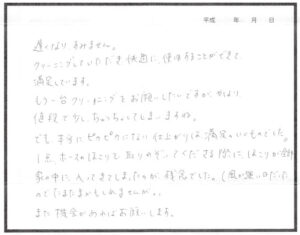 平成 年 月 日
遅くなりすみません。
クリーニングしていただき快適に使用することができて、
満足しています。
もう一台クリーニングをお願いしたいですが、やはり
値段で少し、ちゅうちょしてしまいますね。
でも本当にピカピカになり仕上がりは満足のいくものでした。
1点ホースのほこりを取りのぞいてくださる際に、ほこりが全部
家の中に入ってきてしまったのが残念でした。(風が強い日だった
のでたまたまかもしれませんが。)
また機会があればお願いします。